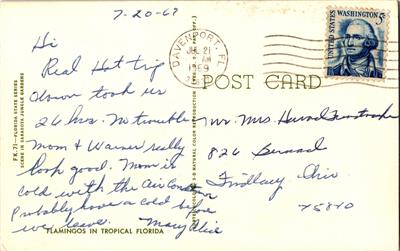 7-20-67
Hi
Real Hot trip
down took us
26 hrs. No trouble
Mom & Warner really
look good. Mom is
cold with the Air Condition
Probably have a cold before
we leave. Mary Alice
FLAMINGOS IN TROPICAL FLORIDA
FK.71—FLORIDA STATE SERIES
SCENE IN SARASOTA JUNGLE GARDENS
NATURAL COLOR REPRODUCTION
DAVENPORT, FL
JUL 21
AM
1969
UNITED STATES WASHINGTON 5c
POST CARD
Mr. Mrs
826
Findlay Ohio
45840